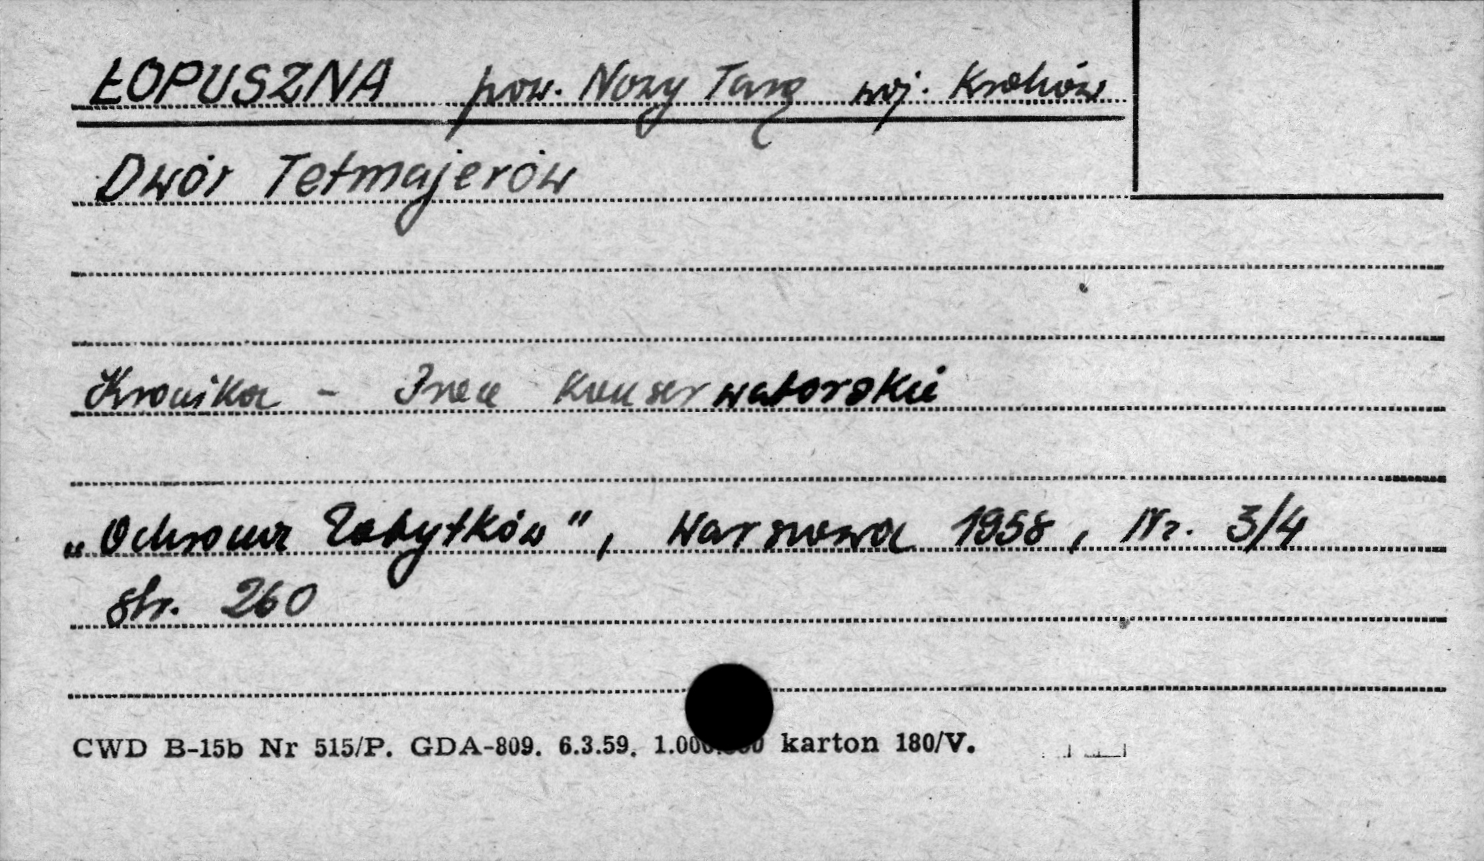 ŁOPUSZNA pow. Nowy Targ woj. Kraków
Dwór Tetmajerów
Kronika - Prace konserwatorskie
„Ochrona Zabytków", Warszawa 1958, Nr. 3/4
str. 260
CWD B-15b Nr 515/P. GDA-809. 6.3.59. 1.000.000 karton 180/V.